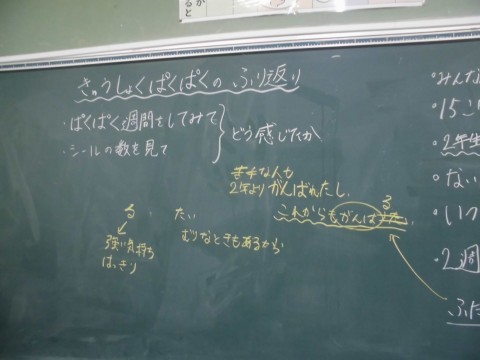 きゅうしょくぱくぱくの ふり返り
・ぱくぱく週間をしてみて
・シールの数を見て
どう感じたか
きらいな人も
2年よりがんばれたし、
これからもがんばる
る
たい
強い気持ち
はっきり
むりなときもあるから
・みんな
・15こ
・2年生
・ない
・いつ
・2週
ふた